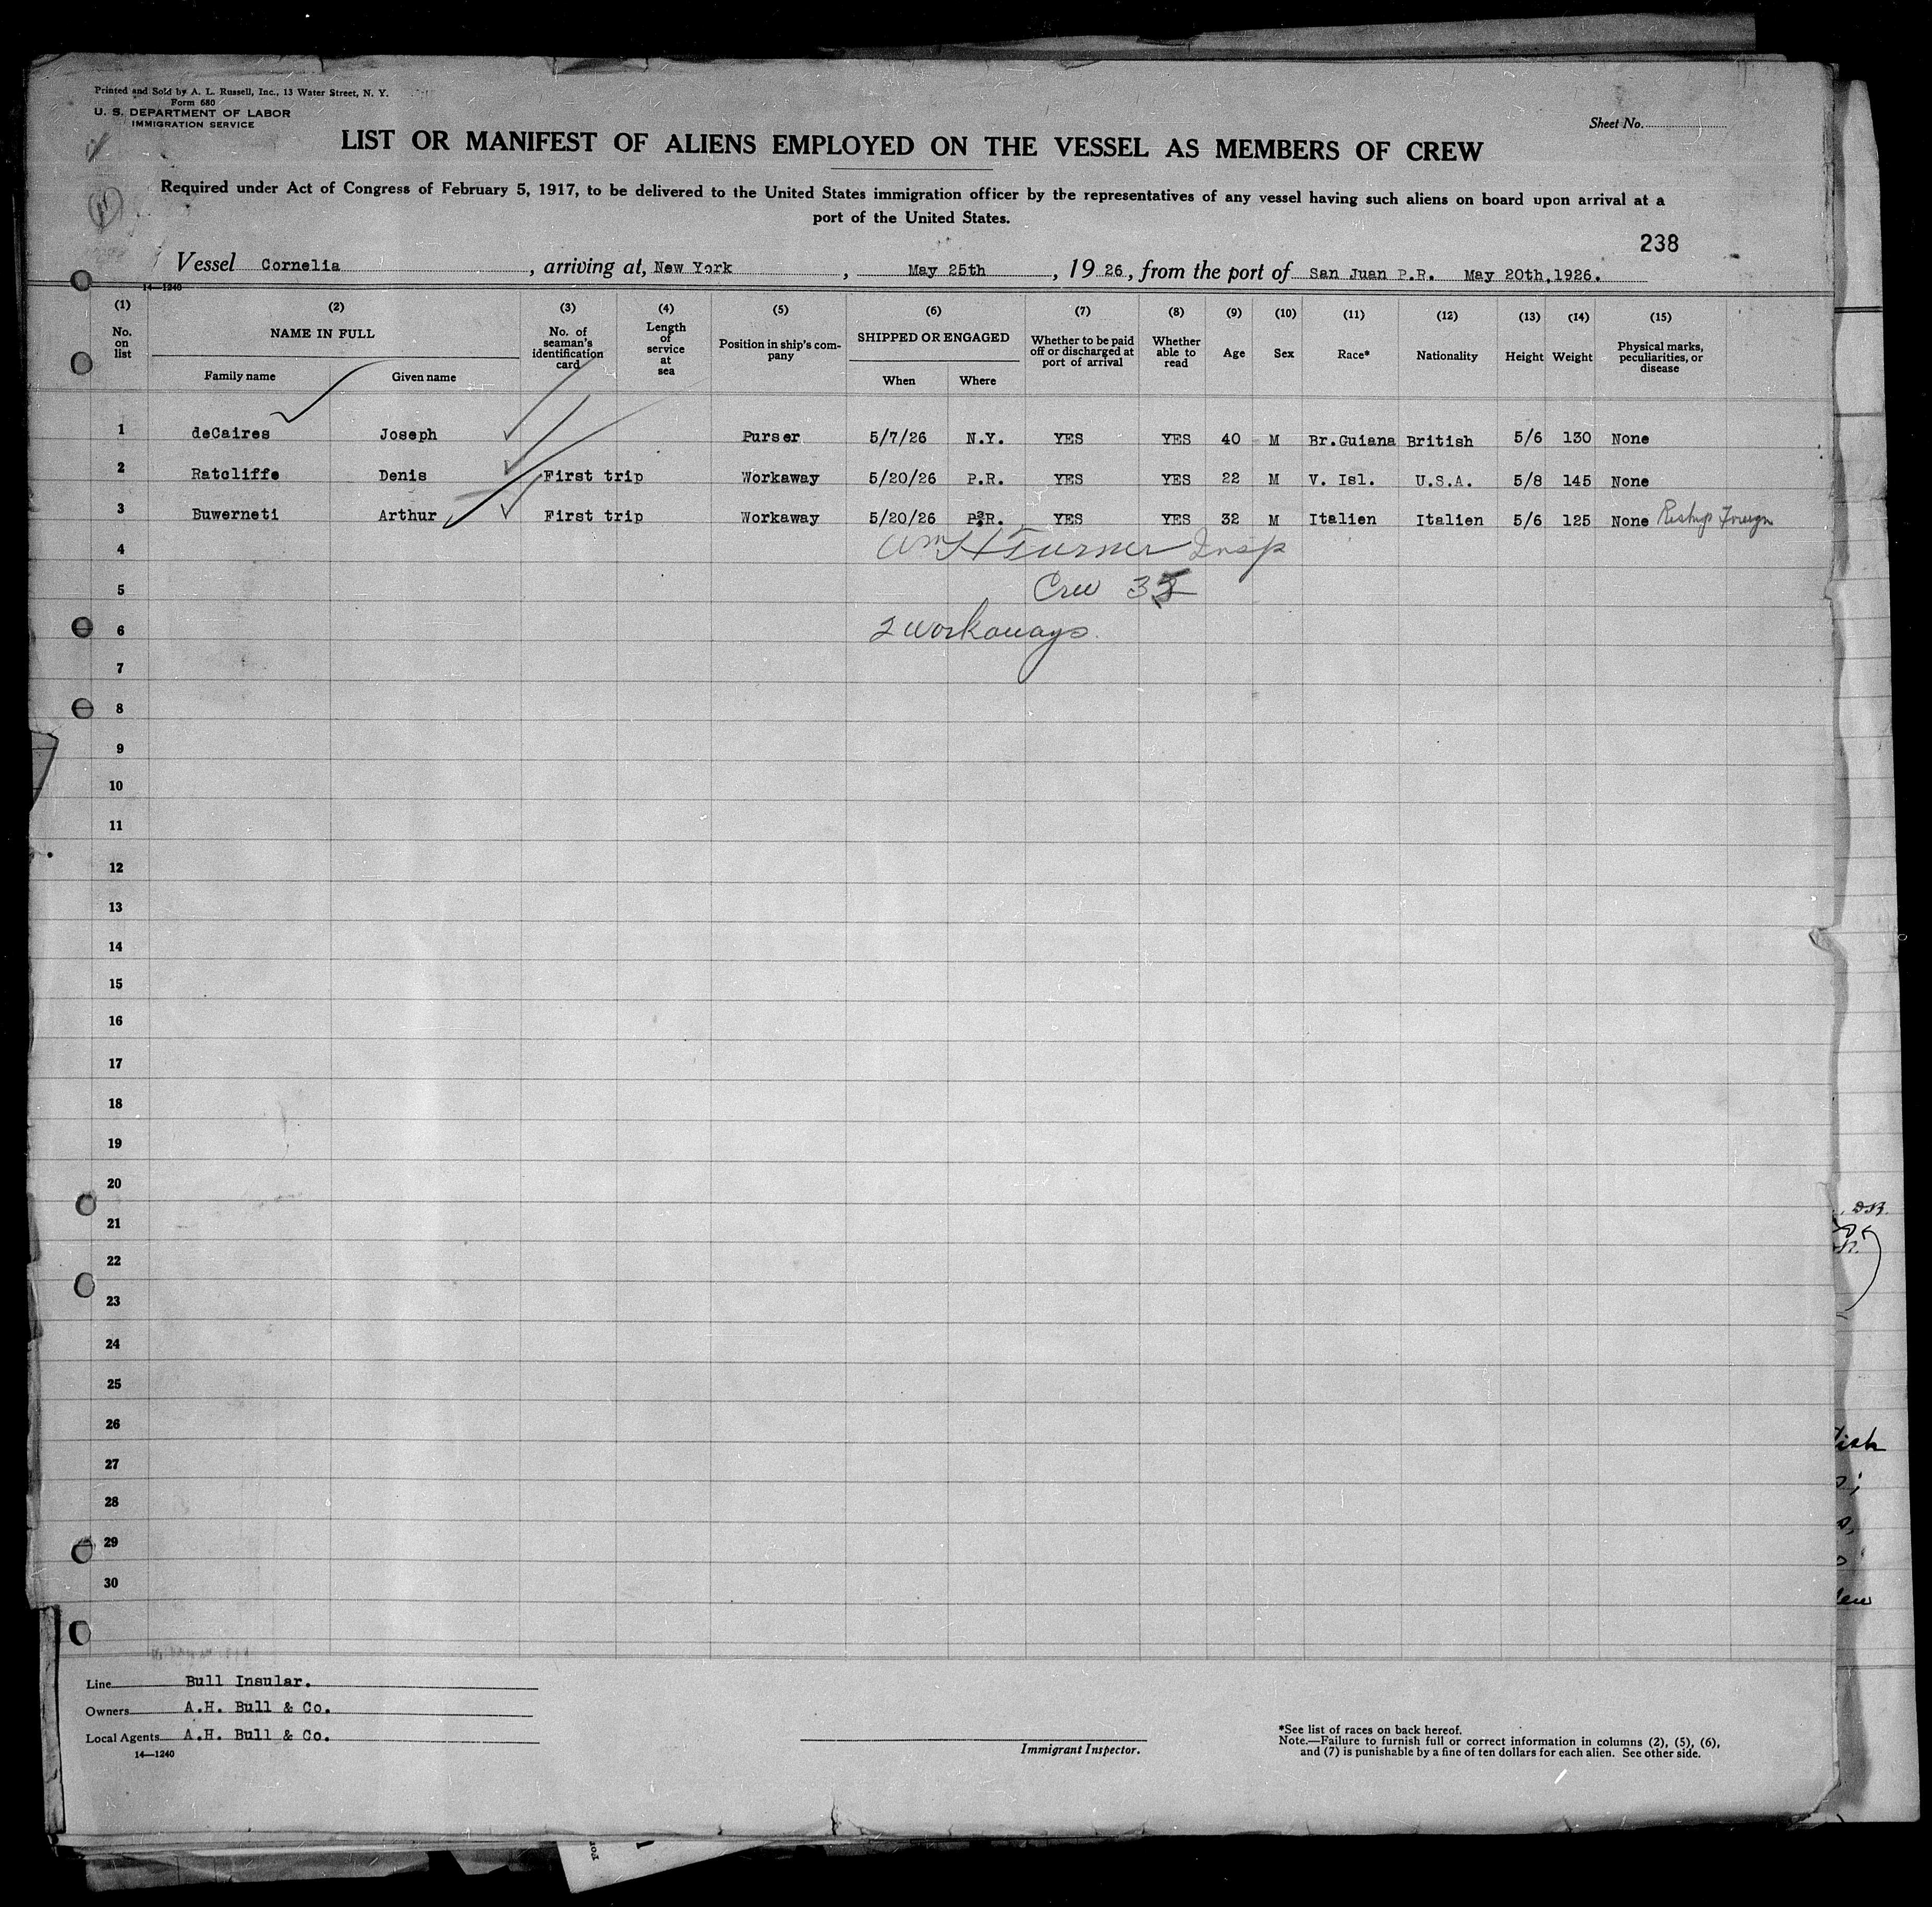 Printed and Sold by A. L. Russell, Inc., 13 Water Street, N. Y.
Form 680
U. S. DEPARTMENT OF LABOR
IMMIGRATION SERVICE
Sheet No.
LIST OR MANIFEST OF ALIENS EMPLOYED ON THE VESSEL AS MEMBERS OF CREW
Required under Act of Congress of February 5, 1917, to be delivered to the United States immigration officer by the representatives of any vessel having such aliens on board upon arrival at a
port of the United States.
238
Vessel Cornelia, arriving at, New York, May 25th, 1926, from the port of San Juan P.R. May 20th, 1926.
14—1240
(1) (2) (3) (4) (5) (6) (7) (8) (9) (10) (11) (12) (13) (14) (15)
No. on list
NAME IN FULL
Family name
Given name
No. of seaman's identification card
Length of service at sea
Position in ship's company
SHIPPED OR ENGAGED
When
Where
Whether to be paid off or discharged at port of arrival
Whether able to read
Age
Sex
Race*
Nationality
Height
Weight
Physical marks, peculiarities, or disease
1 deCaires Joseph Purser 5/7/26 N.Y. YES YES 40 M Br.Guiana British 5/6 130 None
2 Ratcliffe Denis First trip Workaway 5/20/26 P.R. YES YES 22 M V. Isl. U.S.A. 5/8 145 None
3 Buwerneti Arthur First trip Workaway 5/20/26 P.R. YES YES 32 M Italien Italien 5/6 125 None Reship Foreign
4 Wm H Turner Insp
5 Crew 35
6 2 workaways.
7
8
9
10
11
12
13
14
15
16
17
18
19
20
21
22
23
24
25
26
27
28
29
30
Line Bull Insular.
Owners A.H. Bull & Co.
Local Agents A.H. Bull & Co.
14—1240
Immigrant Inspector.
*See list of races on back hereof.
Note.—Failure to furnish full or correct information in columns (2), (5), (6),
and (7) is punishable by a fine of ten dollars for each alien. See other side.